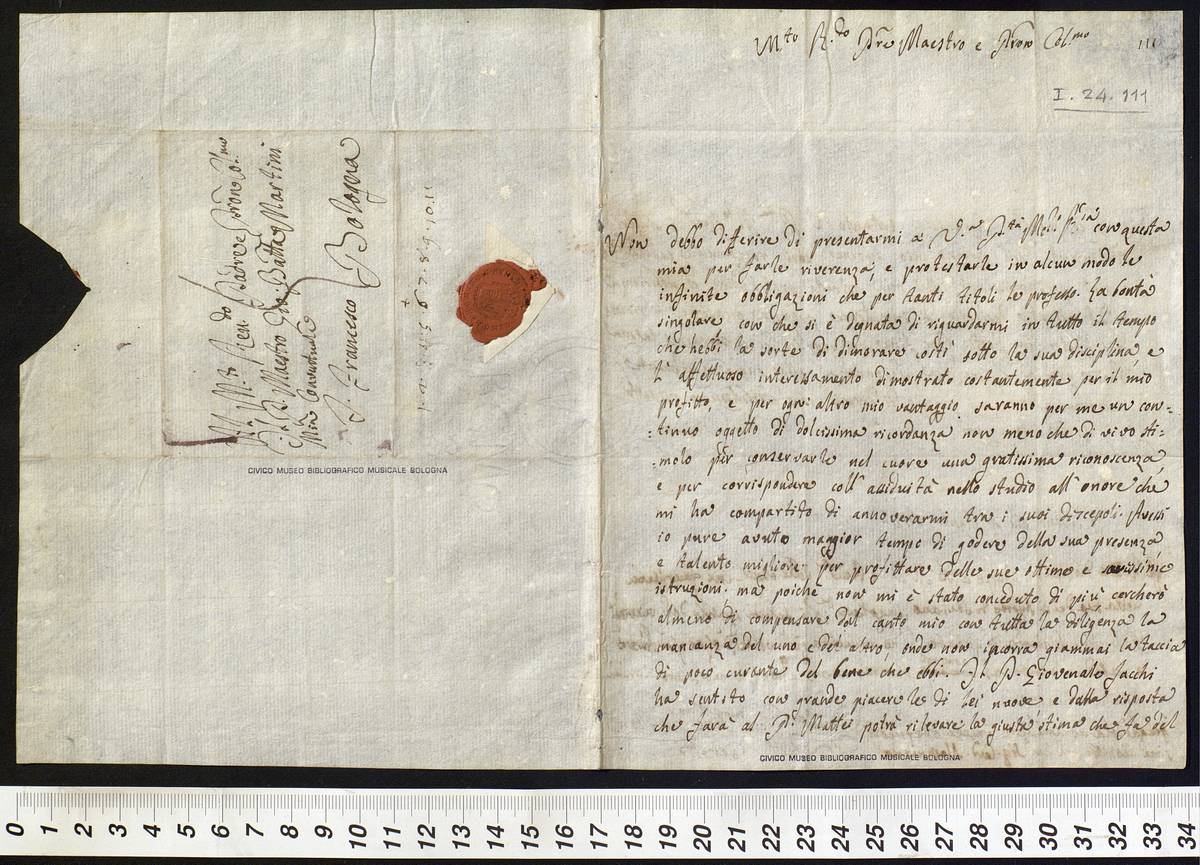 Al M.to Rev.do Padre e Pron Col.mo
Il P. Maestro Gio: Batta Martini
Min. Conventuale
S. Francesco Bologna
CIVICO MUSEO BIBLIOGRAFICO MUSICALE BOLOGNA
M.to R.do Pre Maestro e Pron Col.mo
111
I. 24. 111
Non debbo differire di presentarmi a V.a P.tà con questa
mia per farle riverenza, e protestarle in alcun modo le
infinite obbligazioni che per tanti titoli le professo. La bontà
singolare con che si è degnata di riguardarmi in tutto il tempo
che hebbi la sorte di dimorare costì sotto la sua disciplina e
l'affettuoso interessamento dimostrato costantemente per il mio
profitto, e per ogni altro mio vantaggio saranno per me un con-
tinuo oggetto di dolcissima ricordanza non meno che di vivo sti=
=molo per conservarle nel cuore una gratissima riconoscenza,
e per corrispondere coll'assiduità nello studio all'onore che
mi ha compartito di annoverarmi tra i suoi discepoli. Avessi
io pure avuto maggior tempo di godere della sua presenza
e talento migliore per profittare delle sue ottime e savissime
istruzioni. ma poichè non mi è stato conceduto di più cercherò
almeno di compensare dal canto mio con tutta la diligenza la
mancanza del uno e del altro, onde non incorra giammai la taccia
di poco curante del bene che ebbi. Il P. Giovenale Sacchi
ha sentito con grande piacere le di lei nuove e dalla risposta
che farà al P. Mattei potrà rilevare la giusta stima che fa del
CIVICO MUSEO BIBLIOGRAFICO MUSICALE BOLOGNA
0 1 2 3 4 5 6 7 8 9 10 11 12 13 14 15 16 17 18 19 20 21 22 23 24 25 26 27 28 29 30 31 32 33 34